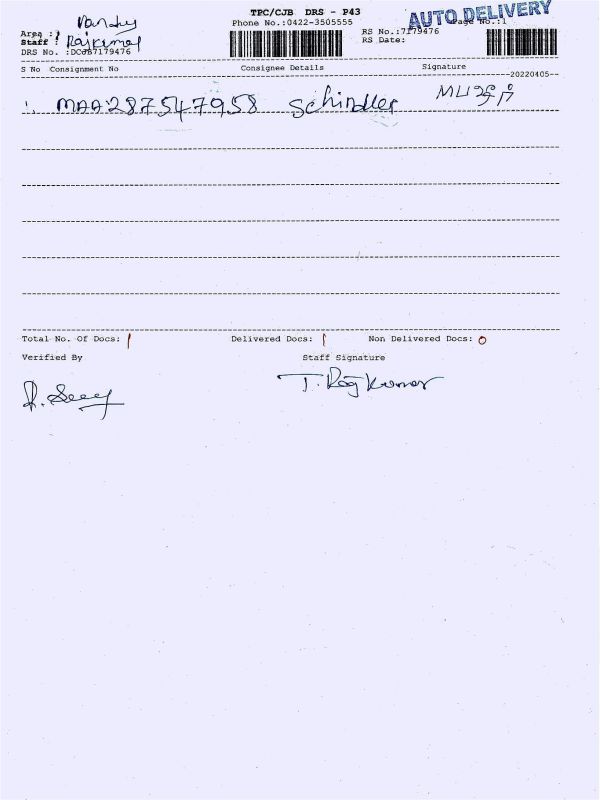 TPC/CJB DRS - P43
AUTO DELIVERY
Phone No.:0422-3505555
Area :
RS No.:7179476
Staff : Rajkumar
RS Date:
DRS No. :DCJB7179476
S No Consignment No Consignee Details Signature
20220405
1. MAA287547958 Schindler
Total No. Of Docs: 1 Delivered Docs: 1 Non Delivered Docs: 0
Verified By Staff Signature
T. Raj Kumar